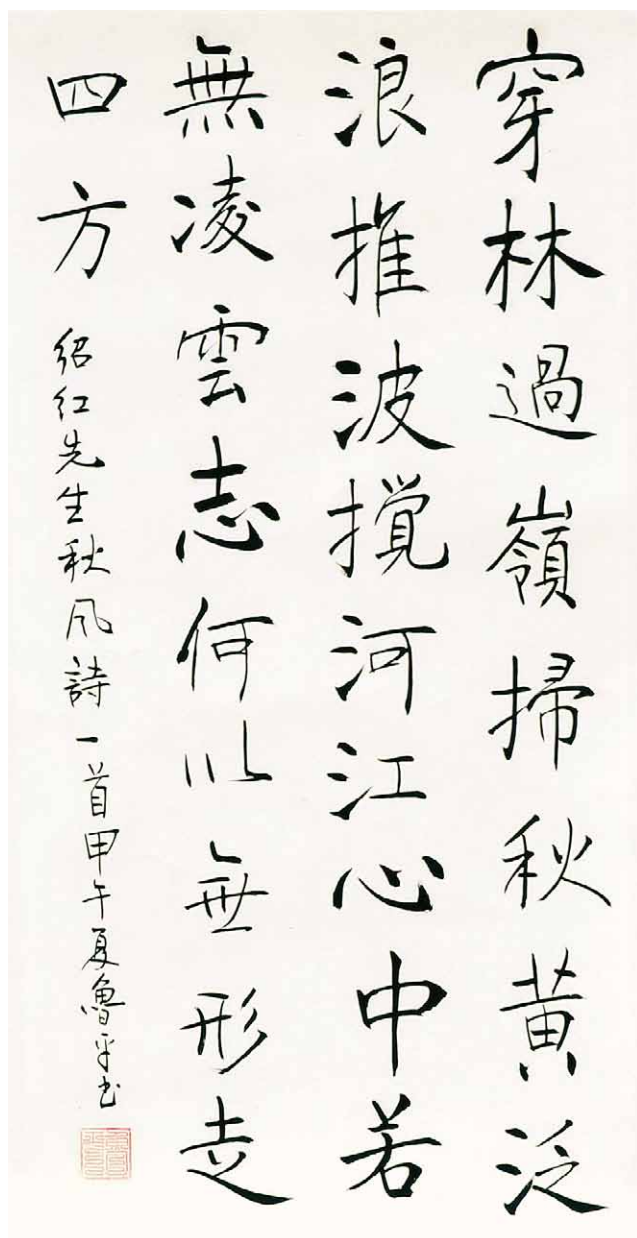 穿林過嶺掃秋黄泛
浪推波搅河江心中若
無凌雲志何以無形走
四方
紹红先生秋风詩一首甲午夏魯平书